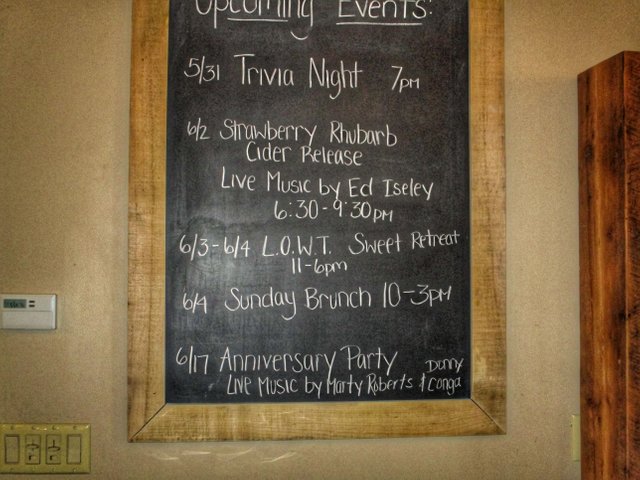 Upcoming Events:
5/31 Trivia Night 7pm
6/2 Strawberry Rhubarb
Cider Release
Live Music by Ed Iseley
6:30-9:30pm
6/3-6/4 L.O.W.T. Sweet Retreat
11-6pm
6/4 Sunday Brunch 10-3pm
6/17 Anniversary Party
Live Music by Marty Roberts & Donny Conga